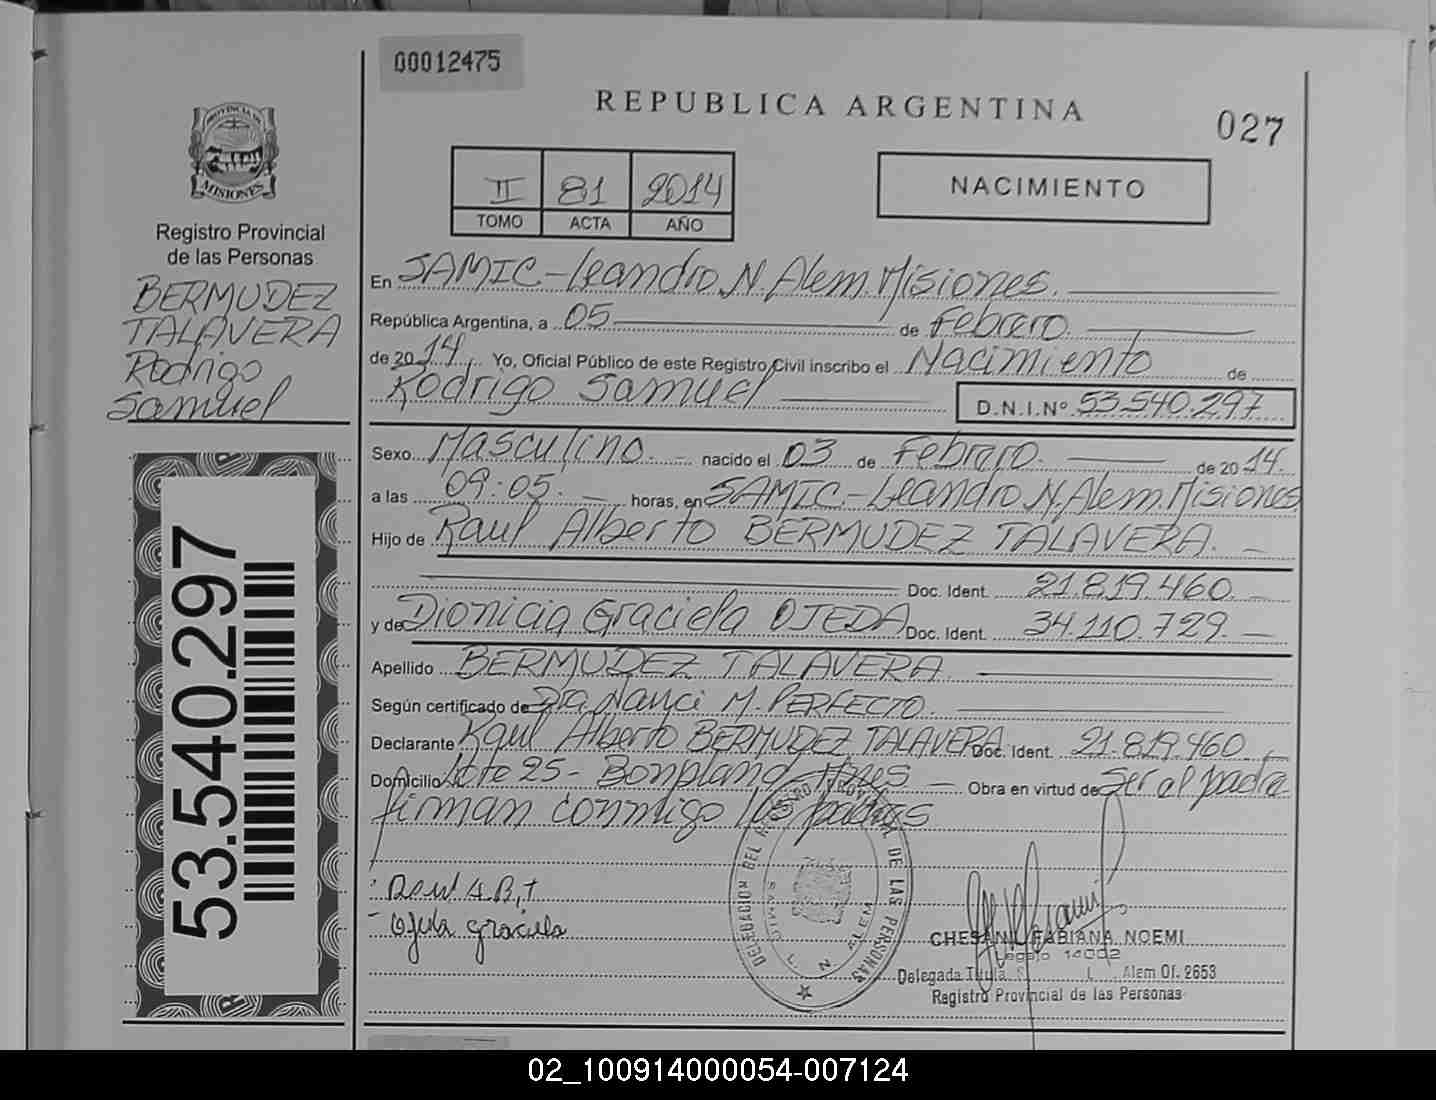 00012475
REPUBLICA ARGENTINA
027
PROVINCIA DE
MISIONES
Registro Provincial
de las Personas
BERMUDEZ
TALAVERA
Rodrigo
Samuel
II 81 2014
TOMO ACTA AÑO
NACIMIENTO
En SAMIC - Leandro N. Alem. Misiones.
República Argentina, a 05 de Febrero
de 2014. Yo, Oficial Público de este Registro Civil inscribo el Nacimiento de
Rodrigo Samuel D.N.I.Nº 53.540.297
Sexo Masculino. nacido el 03 de Febrero. de 2014.
a las 09:05. horas, en SAMIC - Leandro N. Alem. Misiones
Hijo de Raul Alberto BERMUDEZ TALAVERA.
Doc. Ident. 21.819.460.
y de Dionicia Graciela OJEDA Doc. Ident. 34.110.729.
Apellido BERMUDEZ TALAVERA
Según certificado de Dra Nanci M. PERFECTO.
Declarante Raul Alberto BERMUDEZ TALAVERA Doc. Ident. 21.819.460.
Domicilio Lote 25 - Bonpland Mnes Obra en virtud de Ser el padre
firman conmigo los padres
Raul A.B.T
Ojeda graciela
DELEGACION DEL REGISTRO PROVINCIAL DE LAS PERSONAS
SAMIC L. N. ALEM
CHESANI FABIANA NOEMI
Legajo 14002
Delegada Titular S L. Alem Of. 2653
Registro Provincial de las Personas
53.540.297
02_100914000054-007124